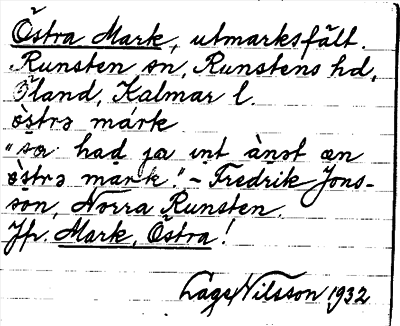 Östra Mark, utmarksfält.
Runsten sn, Runstens hd,
Öland, Kalmar l.
östrə márk
"sa had ja int ànət æn
östrə mark." - Fredrik Jons-
son, Norra Runsten.
Jfr. Mark, Östra!
Nilsson 1932